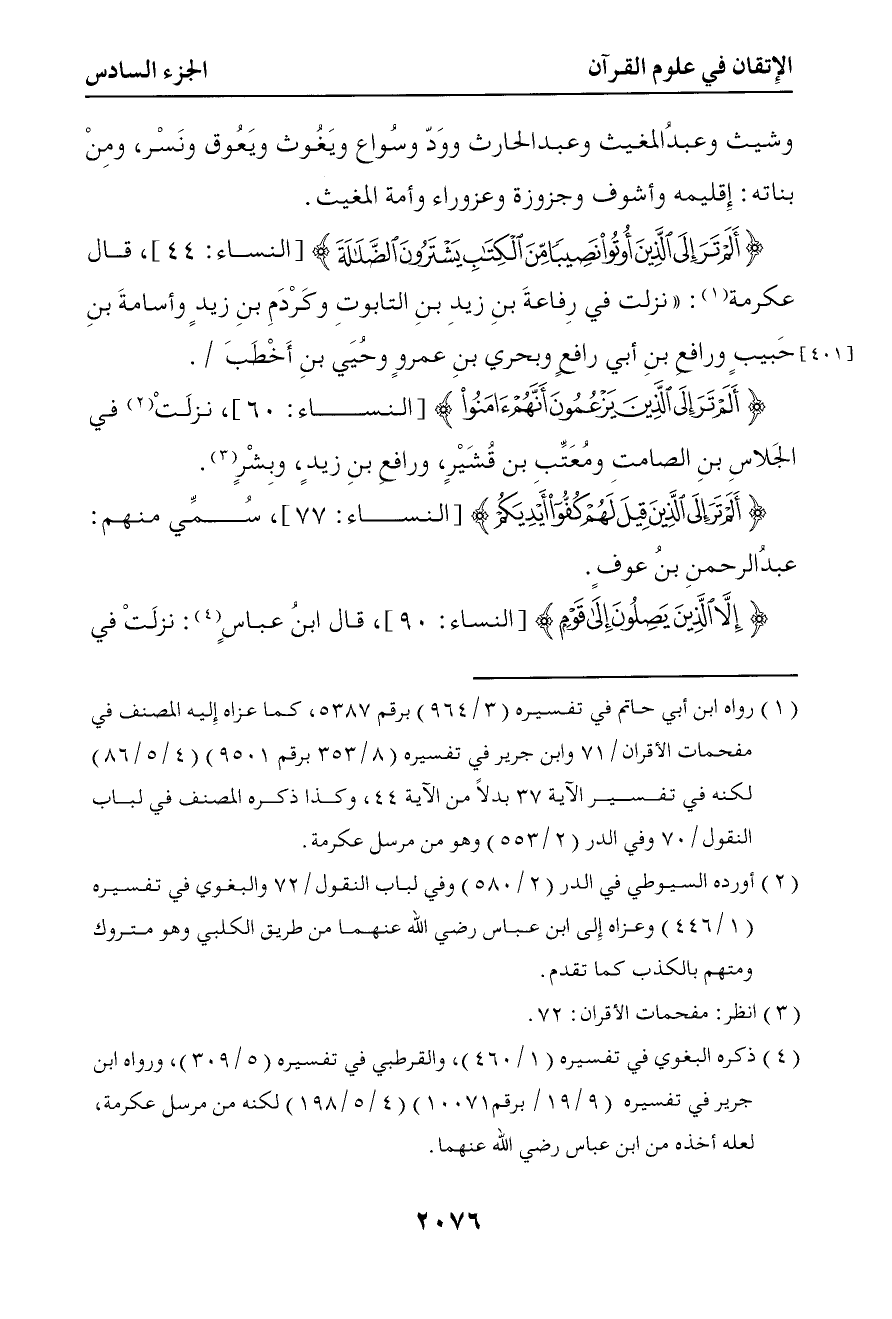 الإتقان في علوم القرآن الجزء السادس
وشيث وعبدُالمغيث وعبدالحارث ووَدّ وسُواع ويَغُوث ويَعُوق ونَسْر، ومِنْ
بناته: إقليمه وأشوف وجزوزة وعزوراء وأمة المغيث.
﴿ أَلَمْ تَرَ إِلَى ٱلَّذِينَ أُوتُوا۟ نَصِيبًا مِّنَ ٱلْكِتَٰبِ يَشْتَرُونَ ٱلضَّلَٰلَةَ ﴾ [النساء: ٤٤]، قـال
عكرمة(١): «نزلت في رِفاعةَ بنِ زيدِ بنِ التابوتِ وكَرْدَمِ بنِ زيدٍ وأسامةَ بنِ
[٤٠١] حَبيبٍ ورافعِ بنِ أبي رافعٍ وبحري بنِ عمرٍو وحُيَي بنِ أَخْطَبَ /.
﴿ أَلَمْ تَرَ إِلَى ٱلَّذِينَ يَزْعُمُونَ أَنَّهُمْ ءَامَنُوا۟ ﴾ [النســـاء: ٦٠]، نزلَتْ(٢) في
الجَلاسِ بنِ الصامتِ ومُعَتِّبِ بن قُشَيْرٍ، ورافعِ بنِ زيدٍ، وبِشْرٍ(٣).
﴿ أَلَمْ تَرَ إِلَى ٱلَّذِينَ قِيلَ لَهُمْ كُفُّوٓا۟ أَيْدِيَكُمْ ﴾ [النســاء: ٧٧]، سُــمِّي منـهم:
عبدُالرحمنِ بنُ عوفٍ.
﴿ إِلَّا ٱلَّذِينَ يَصِلُونَ إِلَىٰ قَوْمٍ ﴾ [النساء: ٩٠]، قال ابنُ عباسٍ(٤): نزلَتْ في
(١) رواه ابن أبي حاتم في تفسيره (٩٦٤/٣) برقم ٥٣٨٧، كما عزاه إليه المصنف في
مفحمات الأقران/ ٧١ وابن جرير في تفسيره (٣٥٣/٨ برقم ٩٥٠١) (٨٦/٥/٤)
لكنه في تفســير الآية ٣٧ بدلاً من الآية ٤٤، وكـذا ذكـره المصنف في لبـاب
النقول/ ٧٠ وفي الدر (٥٥٣/٢) وهو من مرسل عكرمة.
(٢) أورده السيوطي في الدر (٥٨٠/٢) وفي لباب النقول/ ٧٢ والبغوي في تفسيره
(٤٤٦/١) وعـزاه إلى ابن عبـاس رضي الله عنهمـا من طريق الكلبي وهو متـروك
ومتهم بالكذب كما تقدم.
(٣) انظر: مفحمات الأقران: ٧٢.
(٤) ذكره البغوي في تفسيره (٤٦٠/١)، والقرطبي في تفسيره (٣٠٩/٥)، ورواه ابن
جرير في تفسيره (١٩/٩/ برقم١٠٠٧١) (١٩٨/٥/٤) لكنه من مرسل عكرمة،
لعله أخذه من ابن عباس رضي الله عنهما.
٢٠٧٦